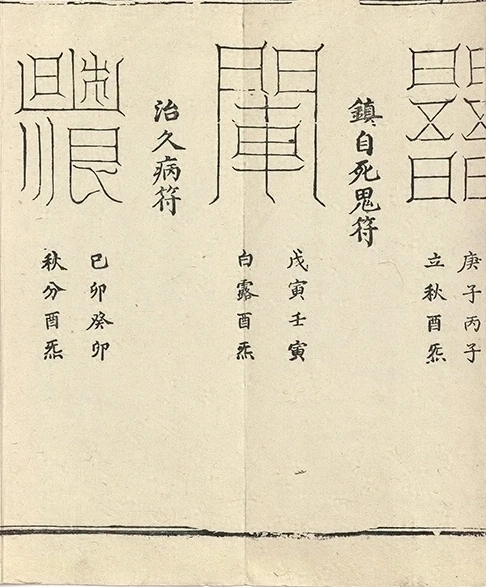 庚子丙子
立秋酉炁
鎮自死鬼符
戊寅壬寅
白露酉炁
治久病符
己卯癸卯
秋分酉炁